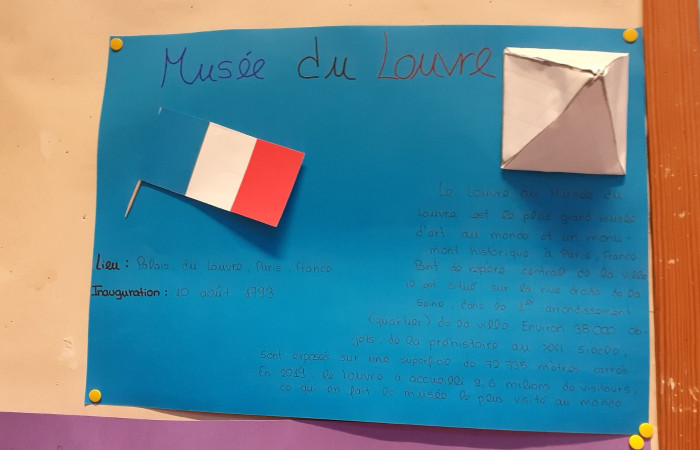 Musée du Louvre
Le Louvre ou Musée du
Louvre est le plus grand musée
d'art au monde et un monu-
ment historique à Paris, France.
Point de repère central de la ville
il est situé sur la rive droite de la
Seine, dans le 1er arrondissement
(quartier) de la ville. Environ 38 000 ob-
jets, de la préhistoire au XXI siècle,
sont exposés sur une superficie de 72 735 mètres carrés.
En 2019, le Louvre a accueilli 9,6 milions de visiteurs,
ce qui en fait le musée le plus visité au monde.
Lieu : Palais du Louvre, Paris, France
Inauguration : 10 août 1793